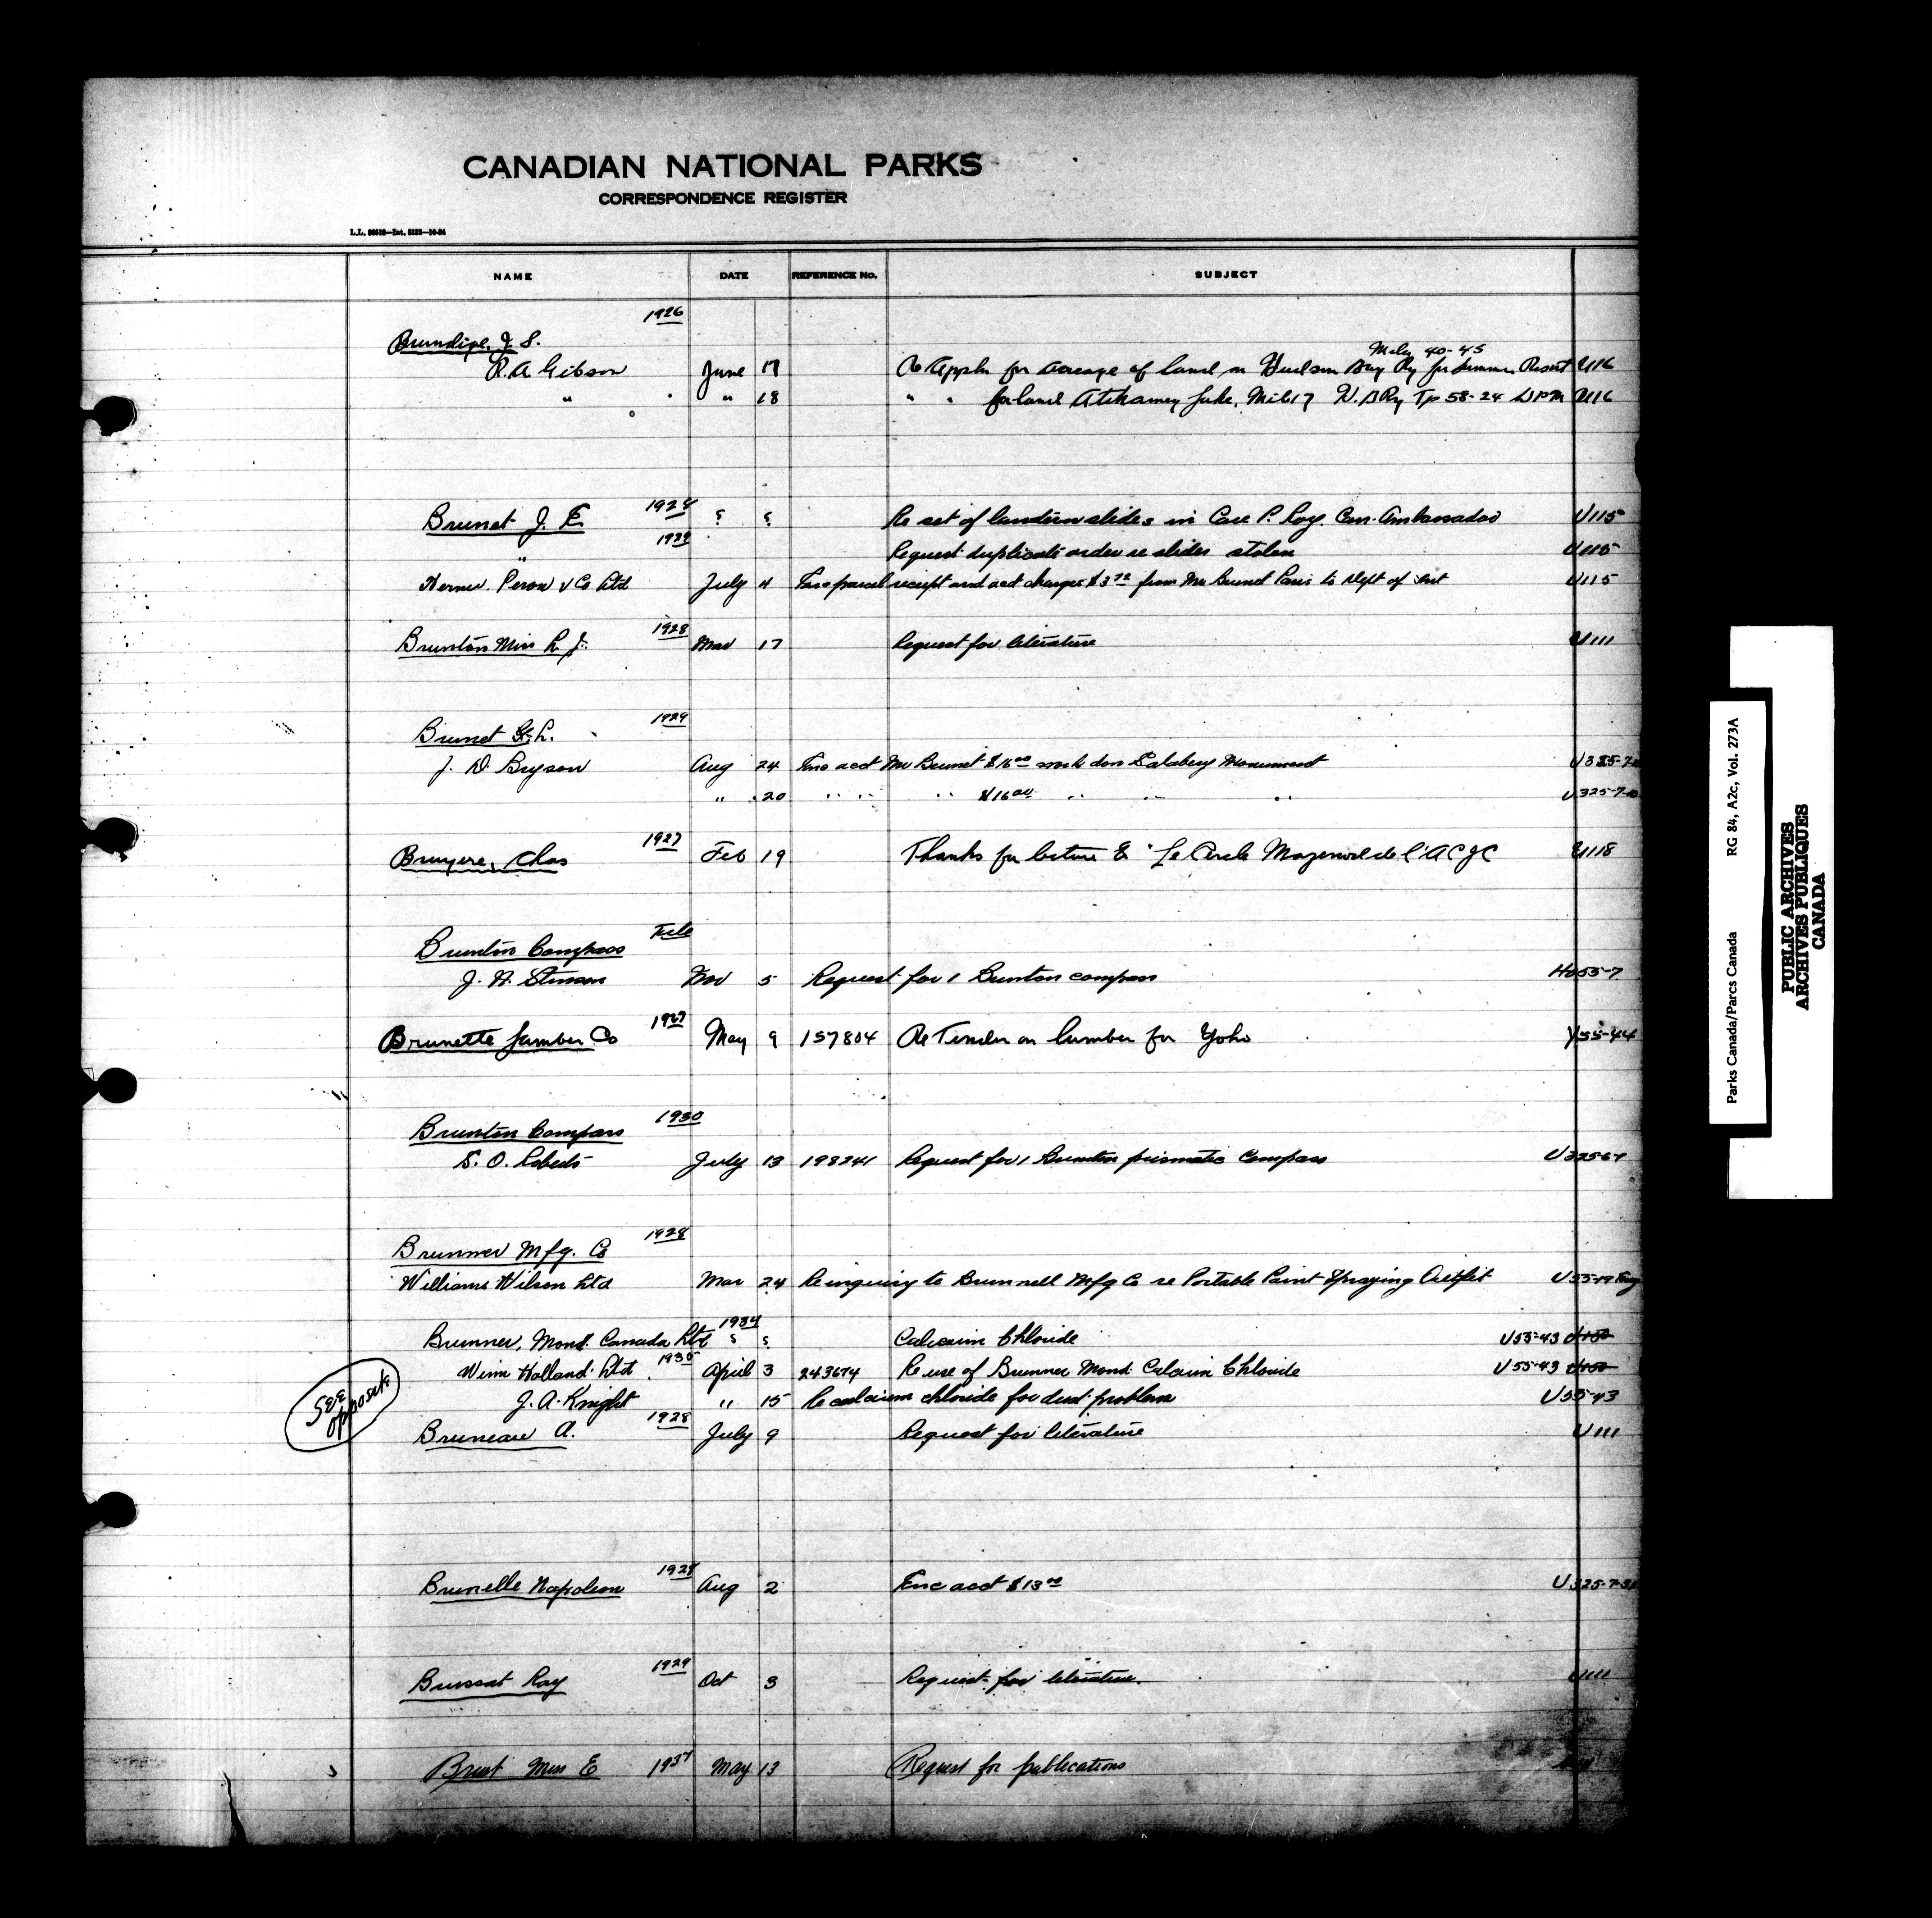 CANADIAN NATIONAL PARKS
CORRESPONDENCE REGISTER
L.L.
NAME DATE REFERENCE No. SUBJECT
1926
Brundige, J. S.
Mile 40-45
R. A. Gibson June 17 Re Appln for acreage of land on Hudson Bay Ry for Summer Resort U116
" " 18 " " for land Atikameg Lake, Mile 17 H. B Ry Tp 58-24 WPM U116
Brunet J. E. 1924 ? ? Re set of lantern slides in Care P. Roy. Can. Ambassador U115
" 1929 Request duplicate order re slides stolen U115
Peron & Co Ltd July 4 parcel receipt and acct charges from Mr Brunet Paris to Dept of Int U115
Brunton Miss R. J. 1928 Mar 17 Request for literature U111
1929
Brunet G. L.
J. D. Bryson Aug 24 Enc acct Mr Brunet $16 00 work done Salabery Monument
" 20 " " " $16 00 " " " U325-7-
Bruyere, Chas 1927 Feb 19 Thanks for lecture to "Le Cercle de l'ACJC U118
File
Brunton Compass
J. H. Stinson Nov 5 Request for 1 Brunton compass
Brunette Lumber Co 1927 May 9 157804 Re Tender on lumber for Yoho Y55-44
1930
Brunton Compass
S. O. Roberts July 13 198241 Request for 1 Brunton prismatic Compass
1928
Brunner Mfg. Co
Williams Wilson Ltd Mar 24 Re inquiry to Brunnell Mfg Co re Portable Paint Spraying Outfit
1934
Brunner, Mond Canada Ltd ? ? Calcium Chloride U55-43
Winn Holland Ltd 1935 April 3 243674 Re use of Brunner Mond Calcium Chloride U55-43
J. A. Knight " 15 Re calcium chloride for dust problem U55-43
See opposite
Bruneau A. 1928 July 9 Request for literature U111
Brunelle Napoleon 1928 Aug 2 Enc acct $13 00
Brussat Ray 1929 Oct 3 Request for literature. U111
Brust Miss E May 13 Request for publications
Parks Canada/Parcs Canada RG 84, A2c, Vol. 273A
PUBLIC ARCHIVES
ARCHIVES PUBLIQUES
CANADA